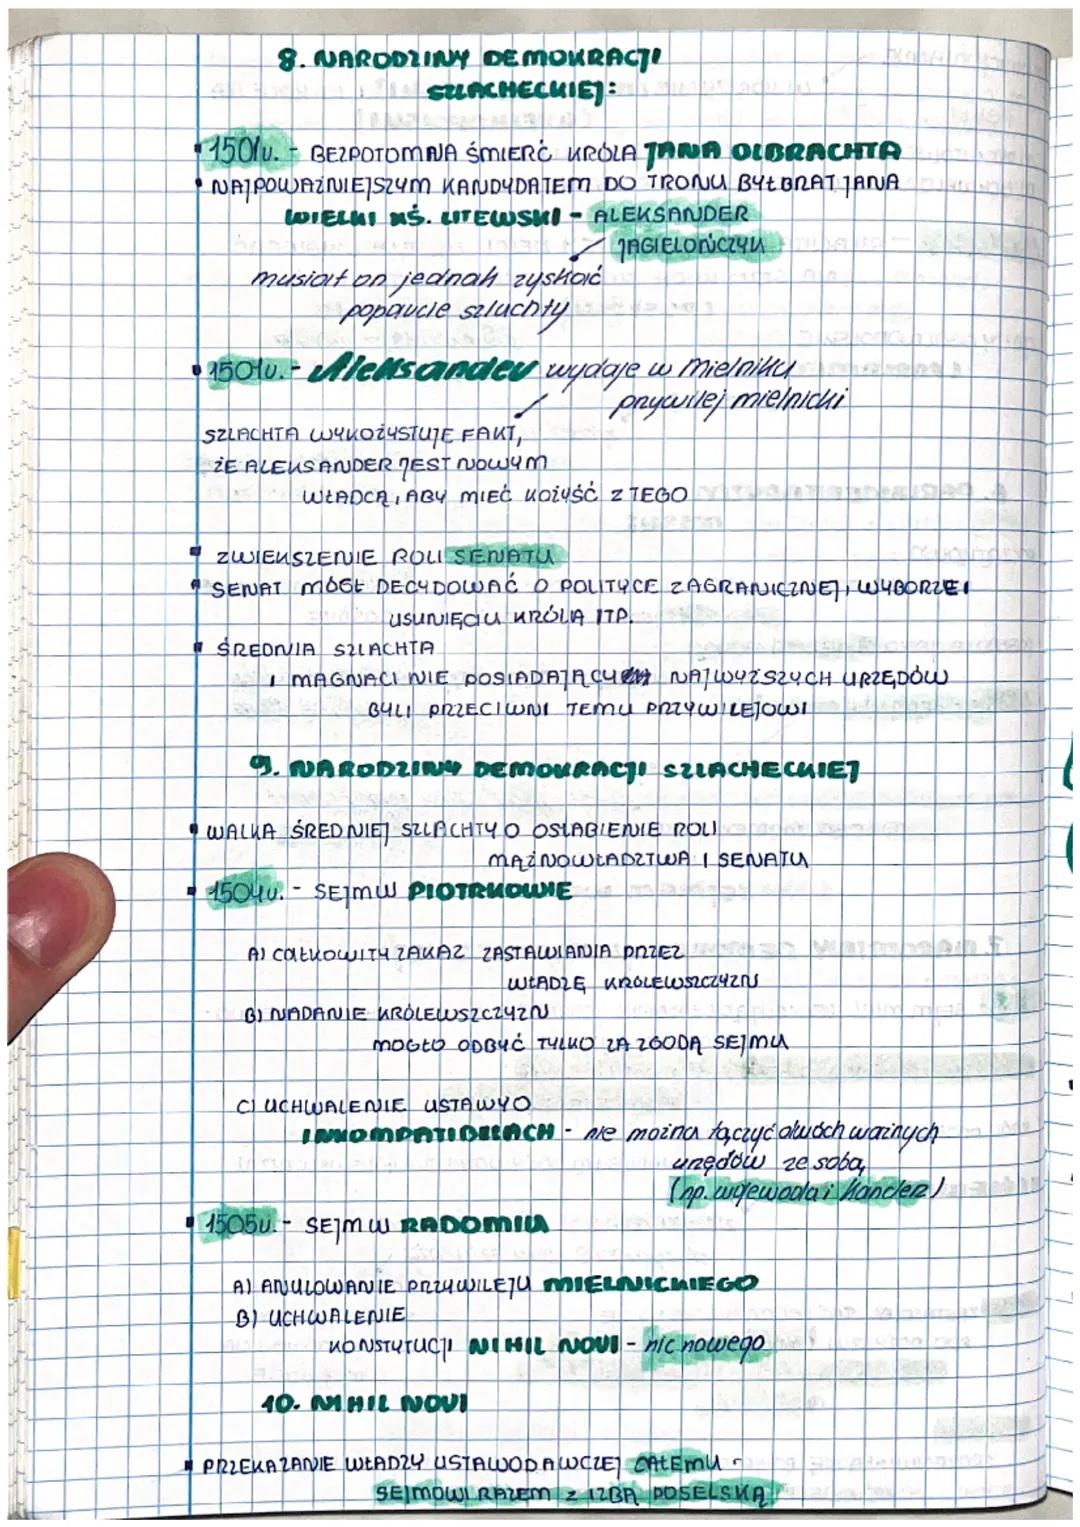 8. NARODZINY DEMOKRACJI
SZLACHECKIEJ:
1501r. - BEZPOTOMNA ŚMIERĆ KRÓLA JANA OLBRACHTA
NAJPOWAŻNIEJSZYM KANDYDATEM DO TRONU BYŁ BRAT JANA
WIELKI KŚ. LITEWSKI - ALEKSANDER
JAGIELOŃCZYK
musiał on jednak zyskać
poparcie szlachty
1501r. - Aleksander wydaje w Mielniku
przywilej mielnicki
SZLACHTA WYKOŻYSTUJE FAKT,
ŻE ALEKSANDER JEST NOWYM
WŁADCĄ, ABY MIEĆ KOŻYŚĆ Z TEGO
ZWIEKSZENIE ROLI SENATU
SENAT MÓGŁ DECYDOWAĆ O POLITYCE ZAGRANICZNEJ, WYBORZE I
USUNIĘCIU KRÓLA ITP.
ŚREDNIA SZLACHTA
I MAGNACI NIE POSIADAJĄCY NAJWYŻSZYCH URZĘDÓW
BYLI PRZECIWNI TEMU PRZYWILEJOWI
9. NARODZINY DEMOKRACJI SZLACHECKIEJ
WALKA ŚREDNIEJ SZLACHTY O OSŁABIENIE ROLI
MAŻNOWŁADZTWA I SENATU
1504r. - SEJM W PIOTRKOWIE
A) CAŁKOWITY ZAKAZ ZASTAWIANIA PRZEZ
WŁADZĘ KRÓLEWSZCZYZN
B) NADANIE KRÓLEWSZCZYZN
MOGŁO ODBYĆ TYLKO ZA ZGODĄ SEJMU
C) UCHWALENIE USTAWY O
INKOMPATIBILIACH - nie można łączyć dwóch ważnych
urzędów ze sobą
(np. wojewoda i kanclerz)
1505r. - SEJM W RADOMIU
A) ANULOWANIE PRZYWILEJU MIELNICKIEGO
B) UCHWALENIE
KONSTYTUCJI NIHIL NOVI - nic nowego
10. NIHIL NOVI
PRZEKAZANIE WŁADZY USTAWODAWCZEJ CAŁEMU -
SEJMOWI RAZEM Z IZBĄ POSELSKĄ